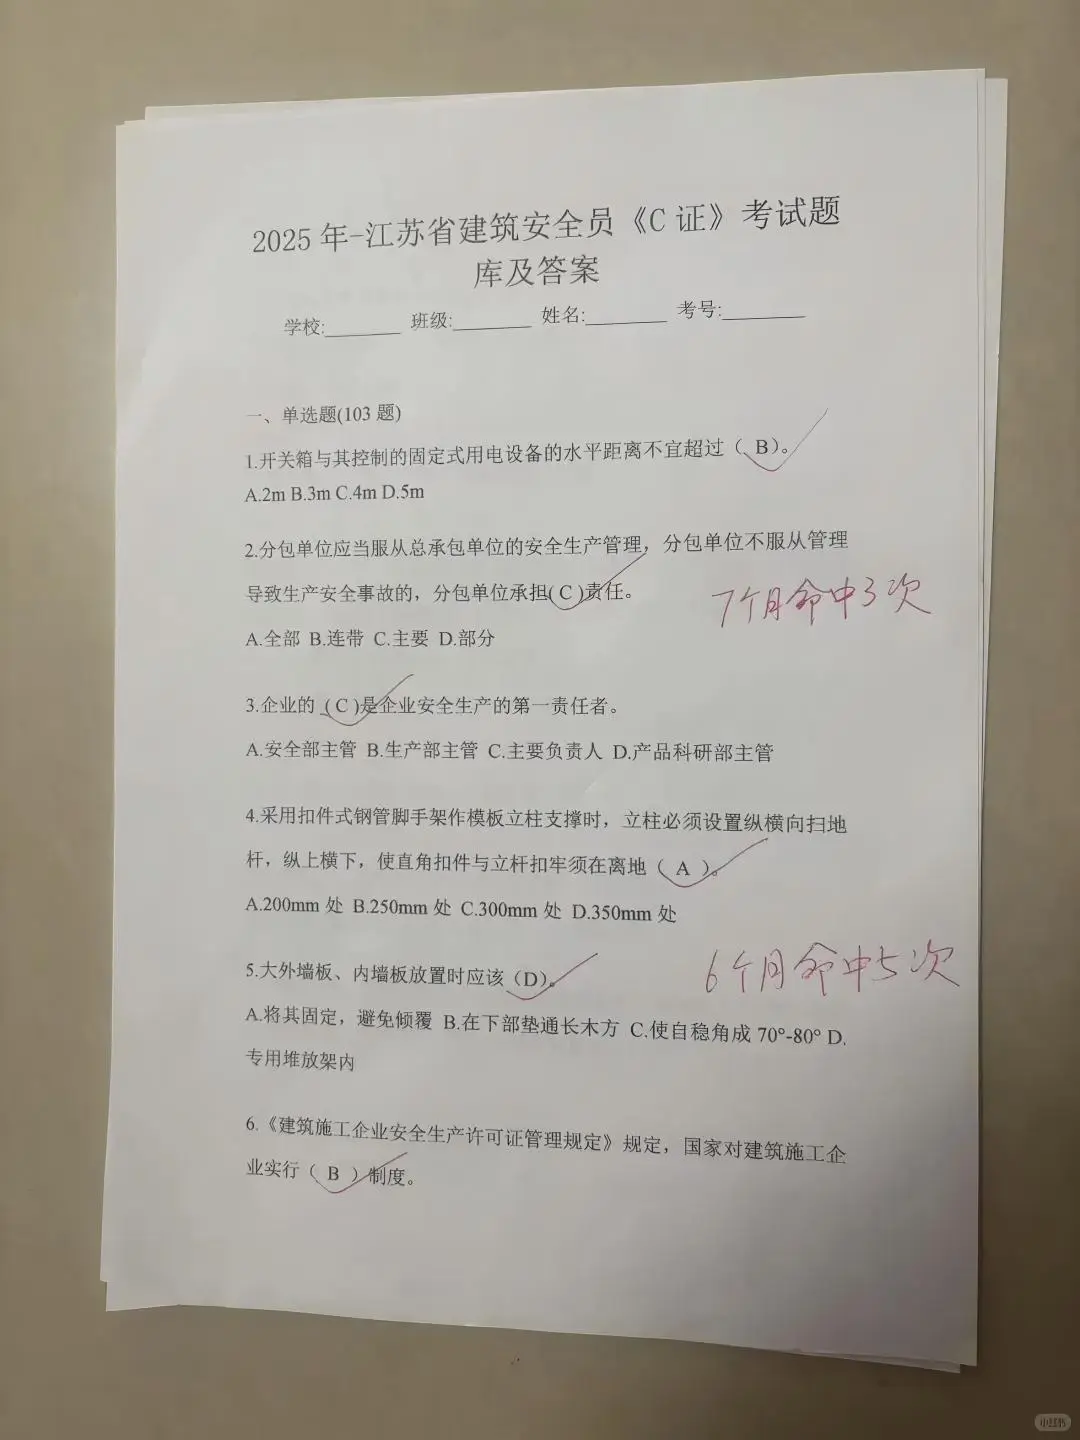 2025 年-江苏省建筑安全员《C 证》考试题
库及答案
学校:________ 班级:________ 姓名:________ 考号:________
一、单选题(103 题)
1.开关箱与其控制的固定式用电设备的水平距离不宜超过（ B）。
A.2m B.3m C.4m D.5m
2.分包单位应当服从总承包单位的安全生产管理，分包单位不服从管理
导致生产安全事故的，分包单位承担( C )责任。
7个月命中3次
A.全部 B.连带 C.主要 D.部分
3.企业的 ( C )是企业安全生产的第一责任者。
A.安全部主管 B.生产部主管 C.主要负责人 D.产品科研部主管
4.采用扣件式钢管脚手架作模板立柱支撑时，立柱必须设置纵横向扫地
杆，纵上横下，使直角扣件与立杆扣牢须在离地（ A ）。
A.200mm 处 B.250mm 处 C.300mm 处 D.350mm 处
5.大外墙板、内墙板放置时应该（D）。
6个月命中5次
A.将其固定，避免倾覆 B.在下部垫通长木方 C.使自稳角成 70°-80° D.
专用堆放架内
6.《建筑施工企业安全生产许可证管理规定》规定，国家对建筑施工企
业实行（ B ）制度。
小红书